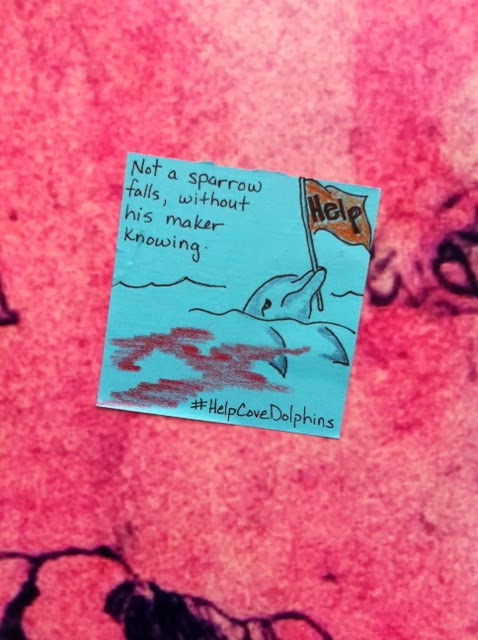 Not a sparrow
falls, without
his maker
knowing.
Help
#HelpCoveDolphins